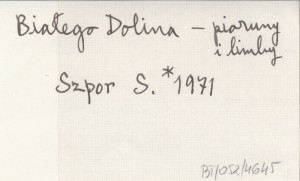 Białego Dolina – pioruny
i limby
Szpor S. *1971
BI/052/4645